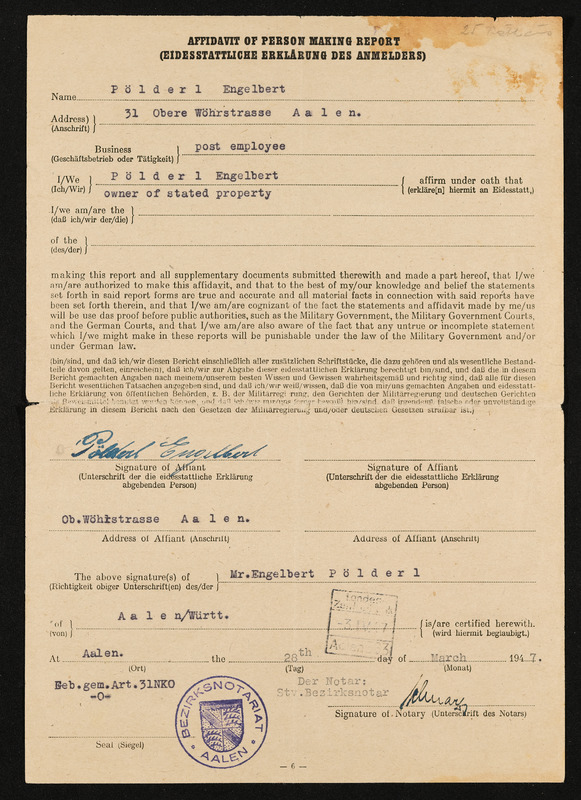 AFFIDAVIT OF PERSON MAKING REPORT
(EIDESSTATTLICHE ERKLÄRUNG DES ANMELDERS)
Name P ö l d e r l   Engelbert
Address) 31 Obere Wöhrstrasse A a l e n.
(Anschrift)
Business post employee
(Geschäftsbetrieb oder Tätigkeit)
I/We P ö l d e r l Engelbert affirm under oath that
(Ich/Wir) owner of stated property (erkläre[n] hiermit an Eidesstatt,)
I/we am/are the
(daß ich/wir der/die)
of the
(des/der)
making this report and all supplementary documents submitted therewith and made a part hereof, that I/we
am/are authorized to make this affidavit, and that to the best of my/our knowledge and belief the statements
set forth in said report forms are true and accurate and all material facts in connection with said reports have
been set forth therein, and that I/we am/are cognizant of the fact the statements and affidavit made by me/us
will be use das proof before public authorities, such as the Military Government, the Military Government Courts,
and the German Courts, and that I/we am/are also aware of the fact that any untrue or incomplete statement
which I/we might make in these reports will be punishable under the law of the Military Government and/or
under German law.
(bin/sind, und daß ich/wir diesen Bericht einschließlich aller zusätzlichen Schriftstücke, die dazu gehören und als wesentliche Bestand-
teile davon gelten, einreiche(n), daß ich/wir zur Abgabe dieser eidesstattlichen Erklärung berechtigt bin/sind, und daß die in diesem
Bericht gemachten Angaben nach meinem/unserem besten Wissen und Gewissen wahrheitsgemäß und richtig sind, daß alle für diesen
Bericht wesentlichen Tatsachen angegeben sind, und daß ich/wir weiß/wissen, daß die von mir/uns gemachten Angaben und eidesstatt-
liche Erklärung von öffentlichen Behörden, z. B. der Militärregierung, den Gerichten der Militärregierung und deutschen Gerichten
als Beweismittel benutzt werden können, und daß ich/wir
Erklärung in diesem Bericht nach den Gesetzen der Militärregierung und/oder deutschen Gesetzen strafbar ist.)
Pölderl Engelbert
Signature of Affiant Signature of Affiant
(Unterschrift der die eidesstattliche Erklärung (Unterschrift der die eidesstattliche Erklärung
abgebenden Person) abgebenden Person)
Ob.Wöhrstrasse A a l e n.
Address of Affiant (Anschrift) Address of Affiant (Anschrift)
The above signature(s) of Mr.Engelbert P ö l d e r l
(Richtigkeit obiger Unterschrift(en) des/der
of A a l e n/Württ. is/are certified herewith.
(von) (wird hiermit beglaubigt.)
At Aalen. the 28th day of March 1947.
(Ort) (Tag) (Monat)
Geb.gem.Art.31NKO Der Notar:
-0- Stv.Bezirksnotar
BEZIRKSNOTARIAT
AALEN
Signature of Notary (Unterschrift des Notars)
Seal (Siegel)
— 6 —